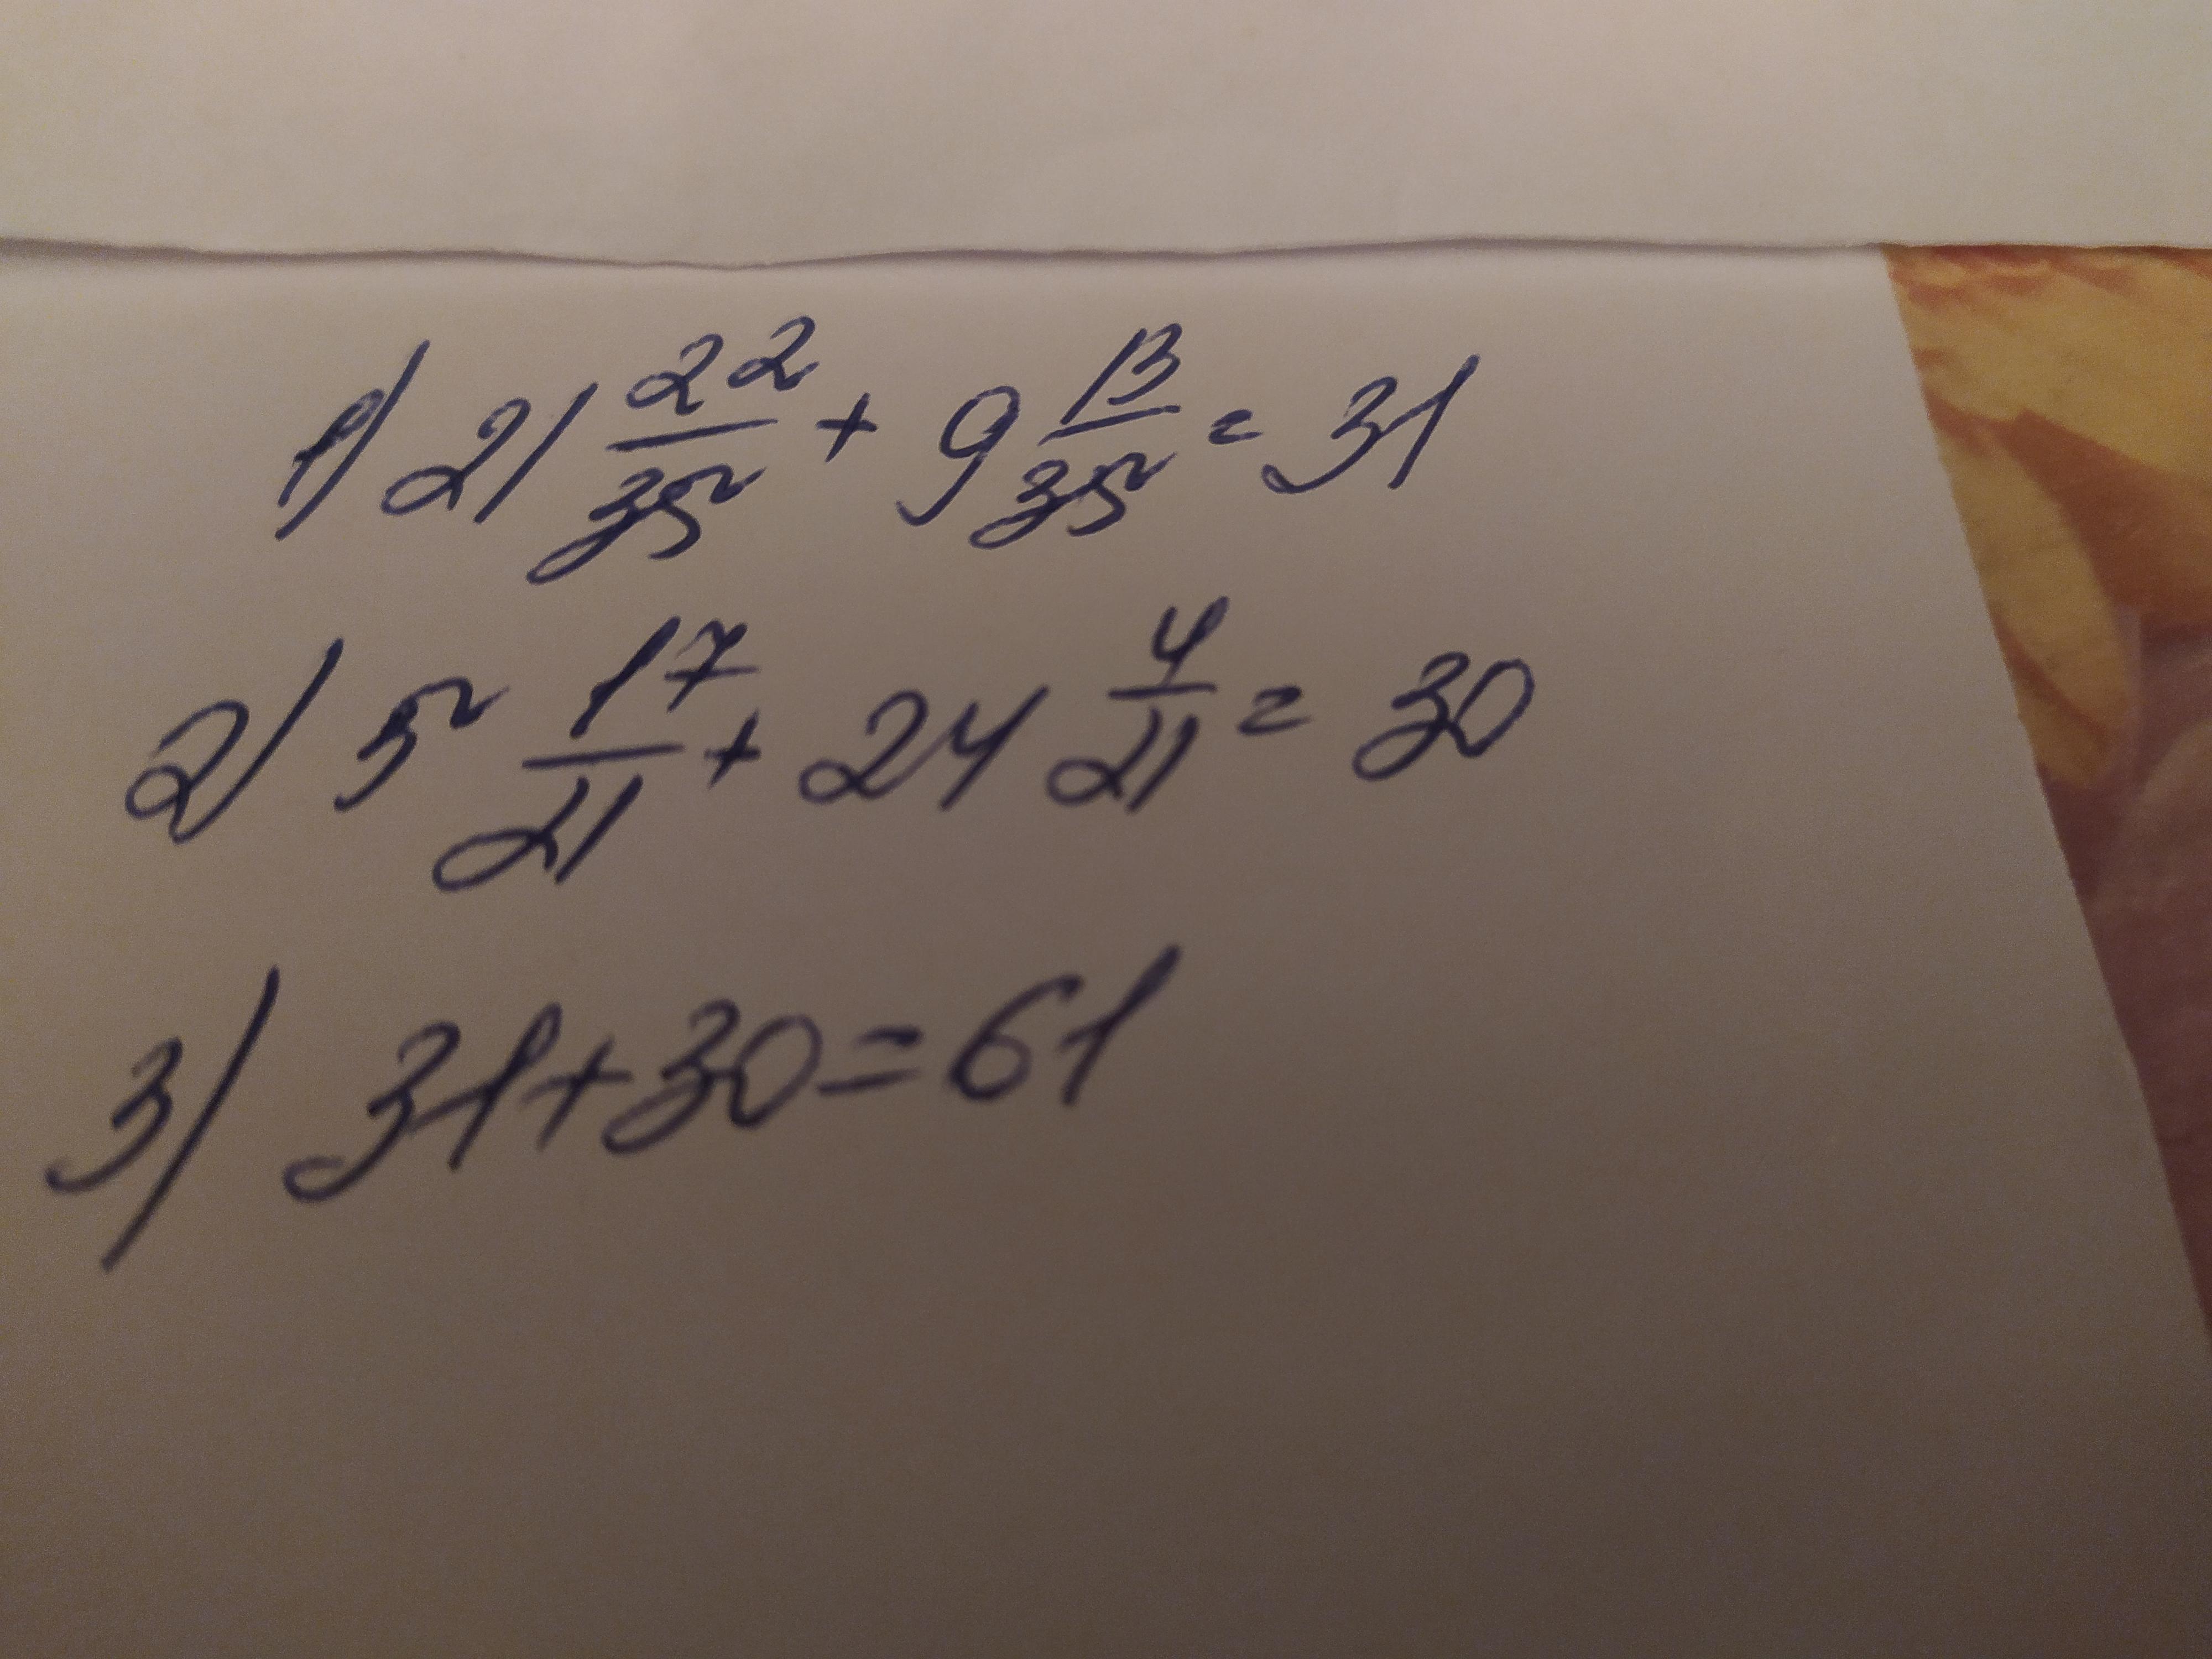 1) 21 22/35 + 9 13/35 = 31
2) 5 17/21 + 24 4/21 = 30
3) 31+30=61